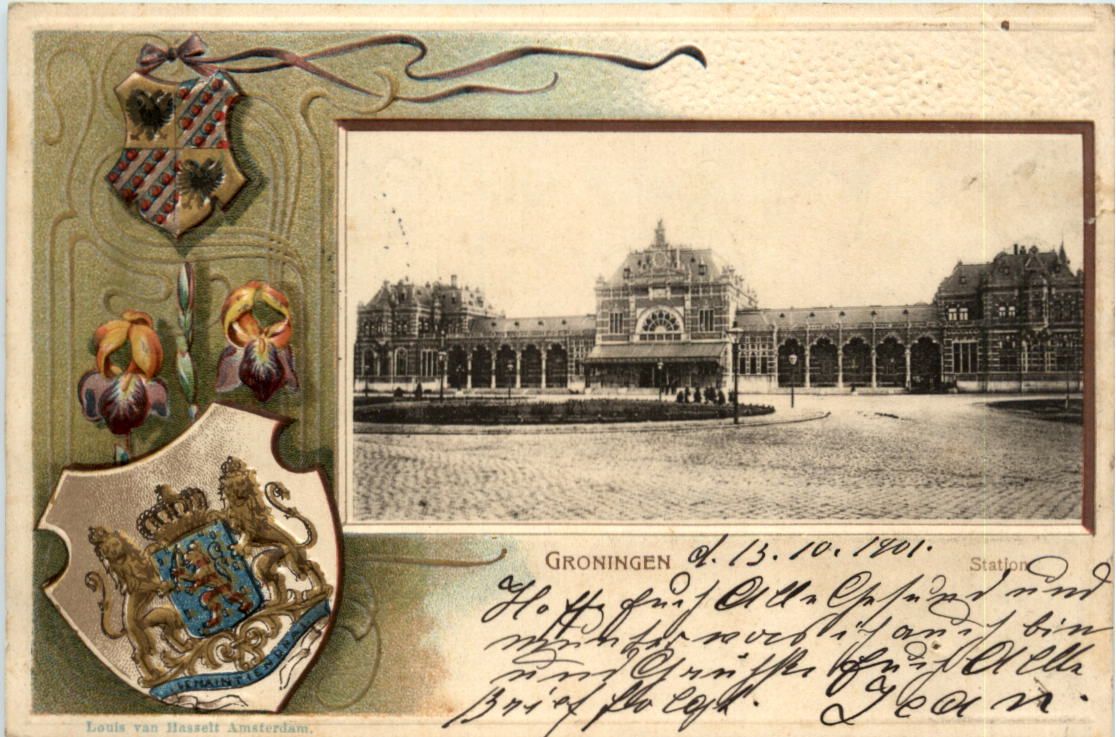 JE MAINTIENDRAI
GRONINGEN d. 13. 10. 1901.
Station
Hoffe Euch Alle Gesund und
munter was ich auch bin
und Grüße Euch Alle
Brief folgt. Jean.
Louis van Hasselt Amsterdam.